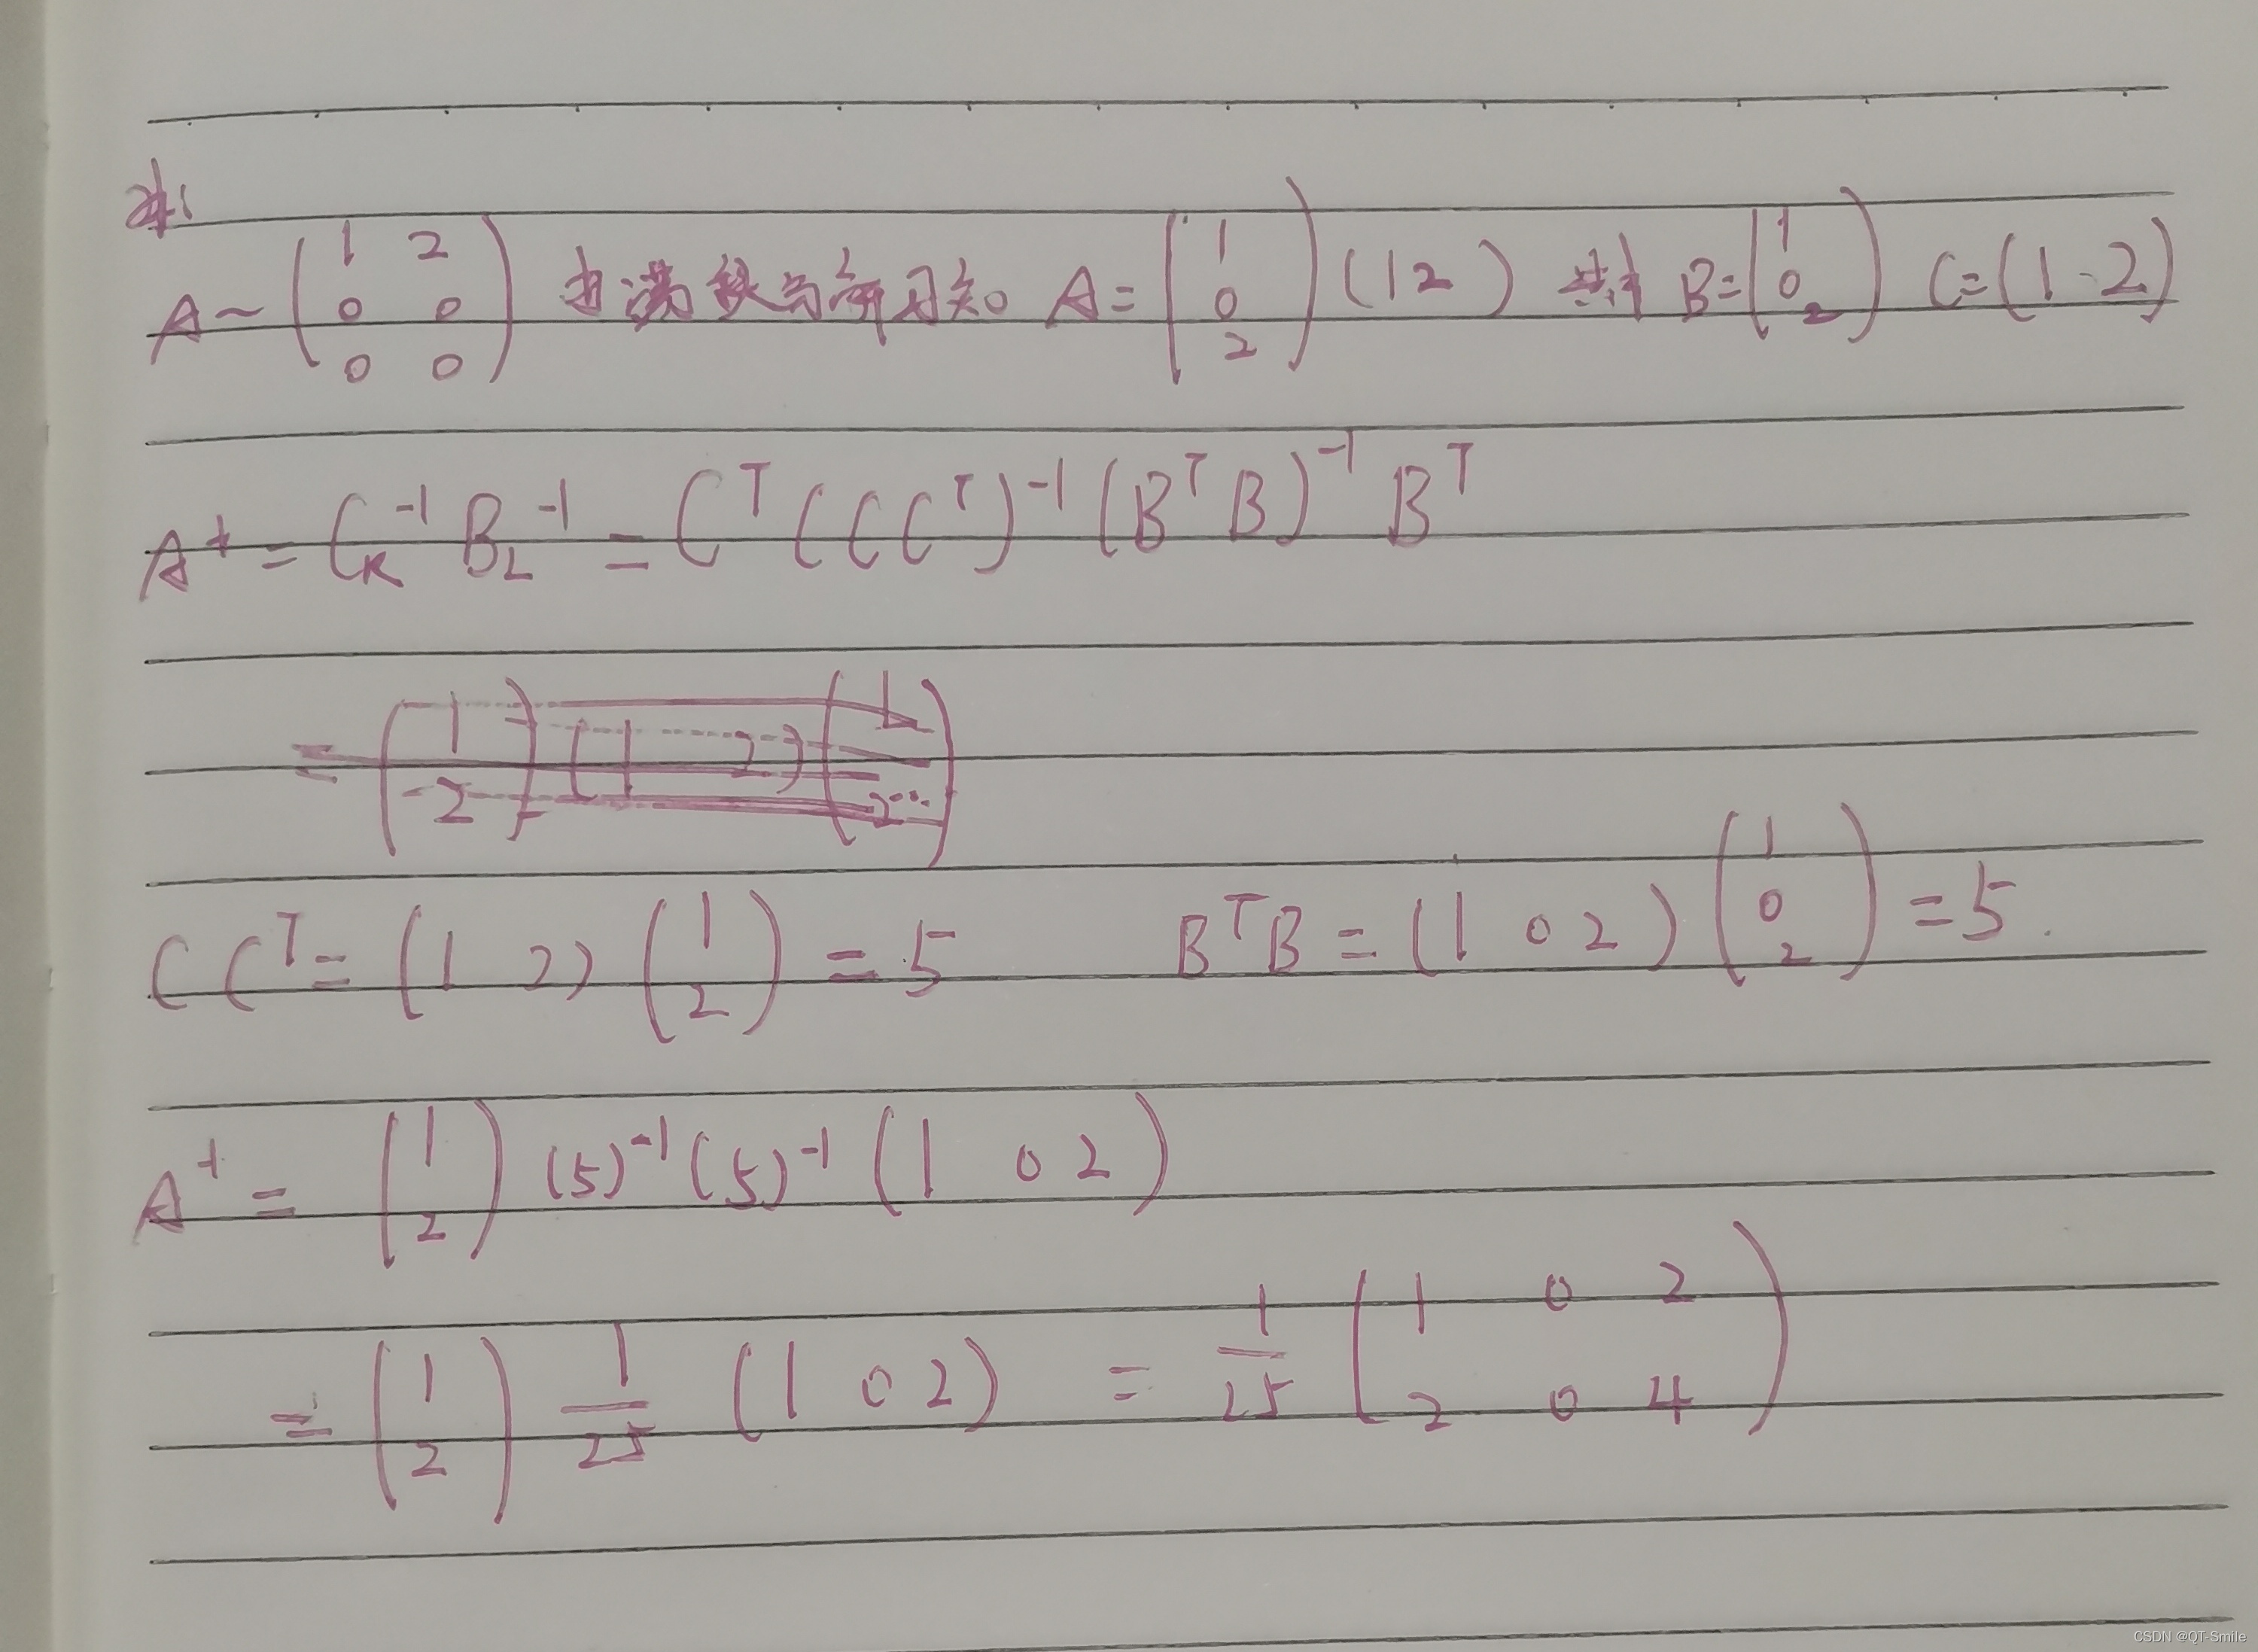 求:
A ~ ( 1 2 ; 0 0 ; 0 0 ) 由满秩分解可知 A = ( 1 ; 0 ; 2 ) (1 2) 其中 B = ( 1 ; 0 ; 2 ) C = (1 2)
A⁺ = C_R⁻¹ B_L⁻¹ = Cᵀ (C Cᵀ)⁻¹ (Bᵀ B)⁻¹ Bᵀ
= ( 1 ; 2 ) (1 2) ( 1 ; 2 )
C Cᵀ = (1 2) ( 1 ; 2 ) = 5 Bᵀ B = (1 0 2) ( 1 ; 0 ; 2 ) = 5.
A⁺ = ( 1 ; 2 ) (5)⁻¹ (5)⁻¹ (1 0 2)
= ( 1 ; 2 ) 1/25 (1 0 2) = 1/25 ( 1 0 2 ; 2 0 4 )
CSDN @QT-Smile